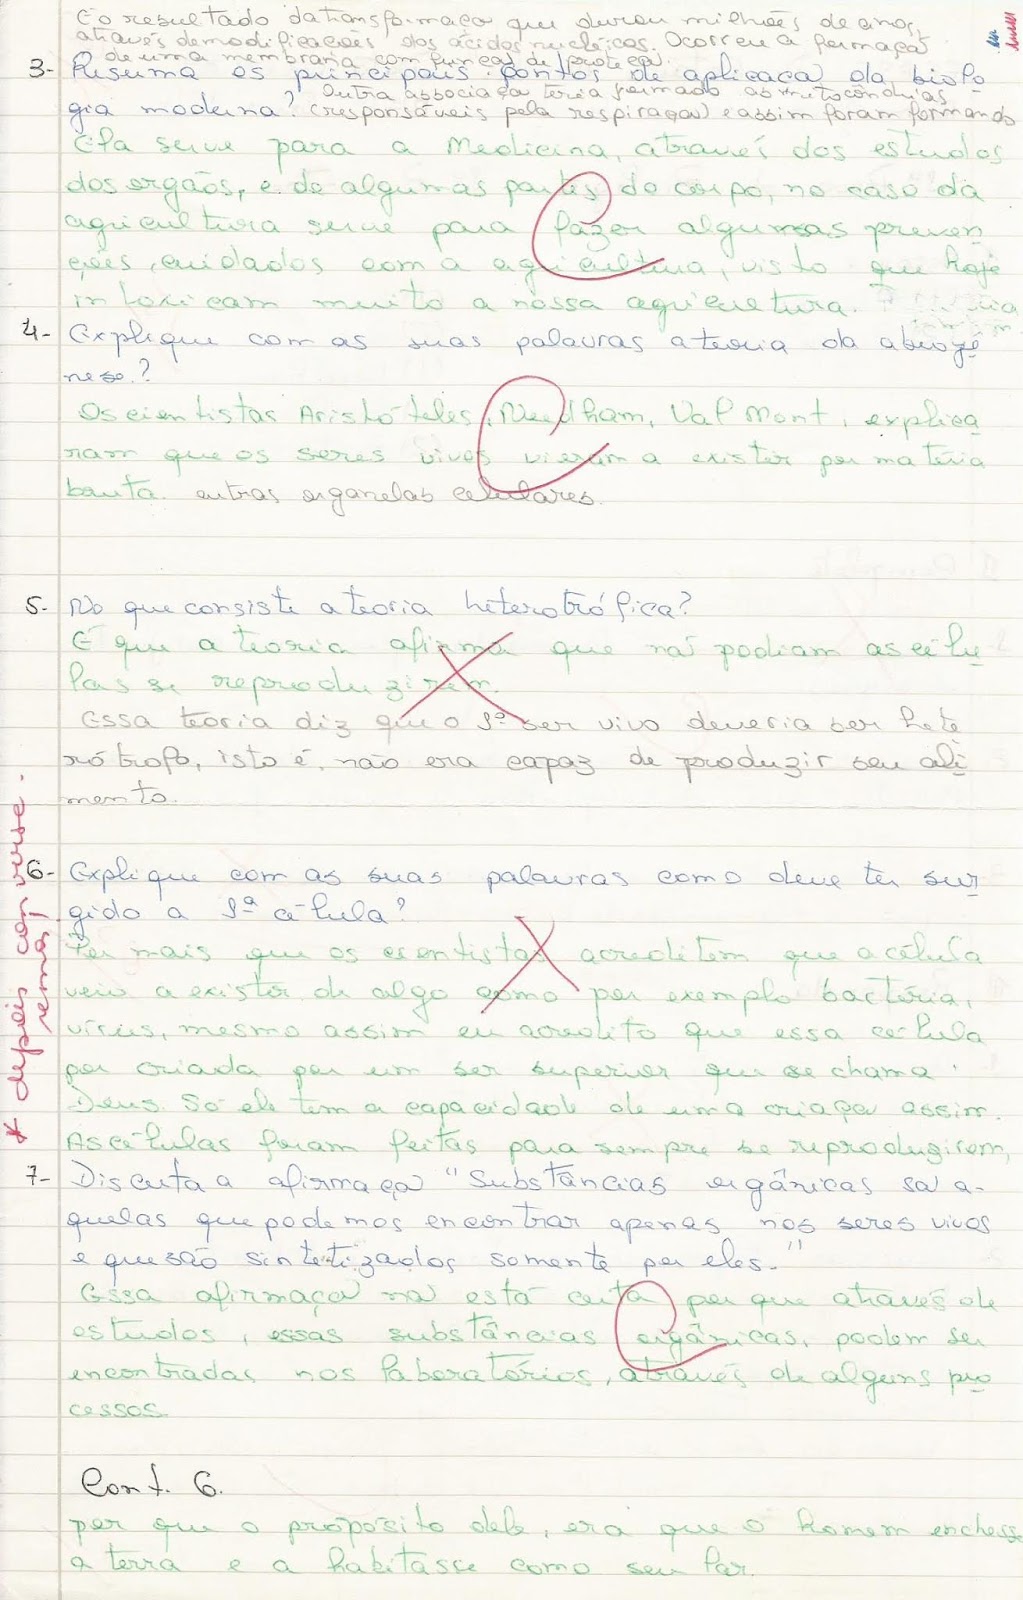 É o resultado da transformaçao que durou milhões de anos,
através de modificações dos ácidos nucléicos. Ocorreu a formaçaõ
de uma membrana com funçaõ de proteçaõ.
3- Resuma os principais pontos de aplicaçaõ da biolo
Outra associaçaõ teria formado as mitocôndrias
gia moderna? (responsáveis pela respiraçaõ) e assim foram formando
Ela serve para a Medicina, através dos estudos
dos orgãos, e de algumas partes do corpo, no caso da
agricultura serve para fazer algumas preven
ções, cuidados com a agricultura, visto que hoje
intoxicam muito a nossa agricultura.
4- Explique com as suas palavras a teoria da abiogê
nese?
Os cientistas Aristóteles, Needham, Val Mont, explica
ram que os seres vivos vieram a existir por matéria
bruta. outras organelas celulares.
5- No que consiste a teoria heterotrófica?
É que a teoria afirma que naõ podiam as célu
las se reproduzirem.
Essa teoria diz que o 1º ser vivo deveria ser hete
rótrofo, isto é, não era capaz de produzir seu ali
mento.
* depois conversa
remos,
6- Explique com as suas palavras como deve ter sur
gido a 1ª célula?
Por mais que os cientistas acreditem que a célula
veio a existir de algo como por exemplo bactéria,
vírus, mesmo assim eu acredito que essa célula
foi criada por um ser superior que se chama
Deus. Só ele tem a capacidade de uma criaçaõ assim.
As células foram feitas para sempre se reproduzirem,
7- Discuta a afirmaçaõ "Substâncias orgânicas saõ a-
quelas que podemos encontrar apenas nos seres vivos
e que são sintetizados somente por eles."
Essa afirmaçaõ naõ está certa por que através de
estudos, essas substâncias orgânicas, podem ser
encontradas nos laboratórios, através de alguns pro
cessos
Cont. 6.
por que o propósito dele, era que o homem enchesse
a terra e a habitasse como seu lar.